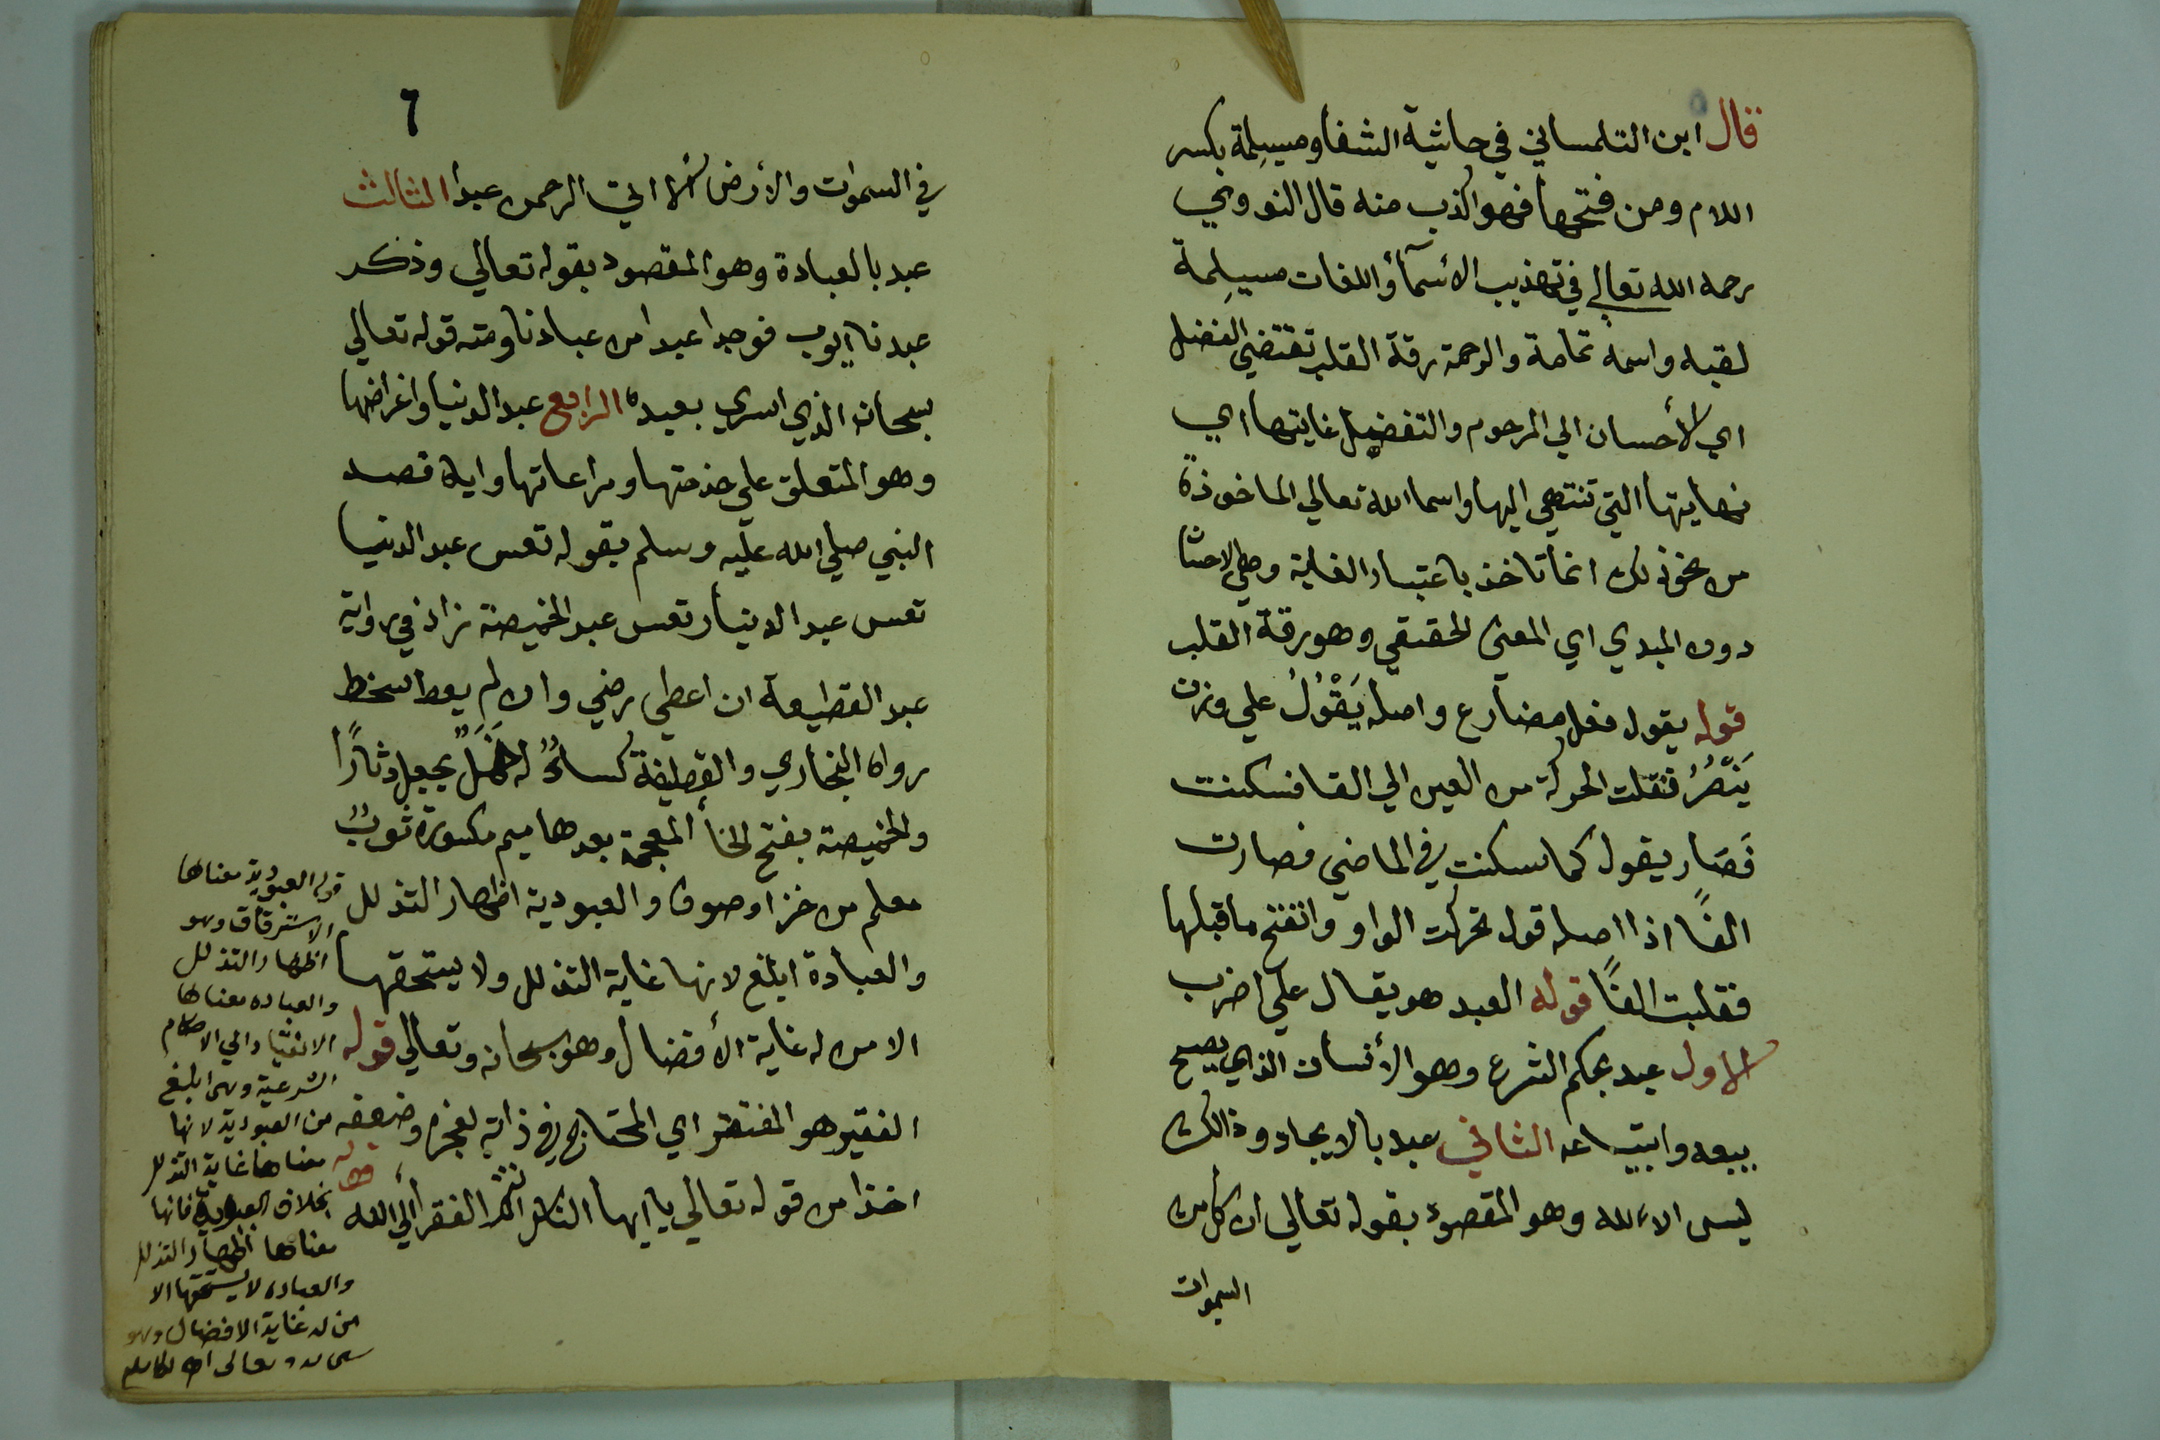 قال ابن التلمساني في حاشية الشفا ومسيلِمة بكسر
اللام ومن فتحها فهو اكذب منه قال النووي
رحمه الله تعالي في تهذيب الأسمآ واللغات مسيلِمة
لقبه واسمه ثمامة والرحمة رقة القلب تقتضي الفضل
اي لأحسان الي المرحوم والتفضيل غايتها اي
نهايتها التي تنتهي اليها واسما الله تعالي الماخوذة
من نحو ذلك انما تاخذ باعتبار الغاية وهي
دون المبدي اي المعني الحقيقي وهو رقة القلب
قوله يقول فعل مضارع واصله يَقْوُلُ علي وزن
يَنْصُرُ فنقلت الحركة من العين الي الفا فسكنت
فَصَار يقول كما سكنت في الماضي فصارت
الفًا اذا اصله قول تحركت الواو وانفتح ما قبلها
فقلبت الفًا قوله العبد هو يقال علي اضرب
الاول عبد بحكم الشرع وهو الأنسان الذي يصح
بيعه وابتياعه الثاني عبد بالايجاد وذالك
ليس الا لله وهو المقصود بقوله تعالي ان كل من
السموات
٦
في السموات والأرض الا اتي الرحمن عبدا الثالث
عبد بالعبادة وهو المقصود بقوله تعالي وذكر
عبدنا ايوب فوجدا عبدا من عبادنا ومنه قوله تعالي
سبحان الذي اسري بعبده الرابع عبد الدنيا واغراضها
وهو المتعلق علي خدمتها ومراعاتها واياه قصد
النبي صلي الله عليه وسلم بقوله تعس عبد الدنيا
تعس عبد الدينار تعس عبد الخميصة زاد في رواية
عبد القطيعة ان اعطي رضي وان لم يعط سخط
رواه البخاري والقطيفة كساءٌ له خَمَلٌ يجعل دثارًا
والخميصة بفتح الخأ المعجمة بعدها ميم مكسورة ثوبٌ
معلم من خز او صوف والعبودية اظهار التذلل
والعبادة ابلغ لانها غاية التذلل ولا يستحقها
الا من له غاية الأفضال وهو سبحانه وتعالي قوله
الفقير هو المفتقر اي المحتاج في ذاته لعجزه وضعفه
اخذا من قوله تعالي يا ايها الناس انتم الفقرأ الي الله
قوله العبودية معناها
الاسترقاق وهو
اظهار التذلل
والعباده معناها
الانقياد الي الاحكام
الشرعية وهي ابلغ
من العبودية لانها
معناها غاية التذلل
بخلاف العبودية فانها
معناها اظهار التذلل
والعباده لا يستحقها الا
من له غاية الافضال وهو
سبحانه وتعالى اهـ
قوله